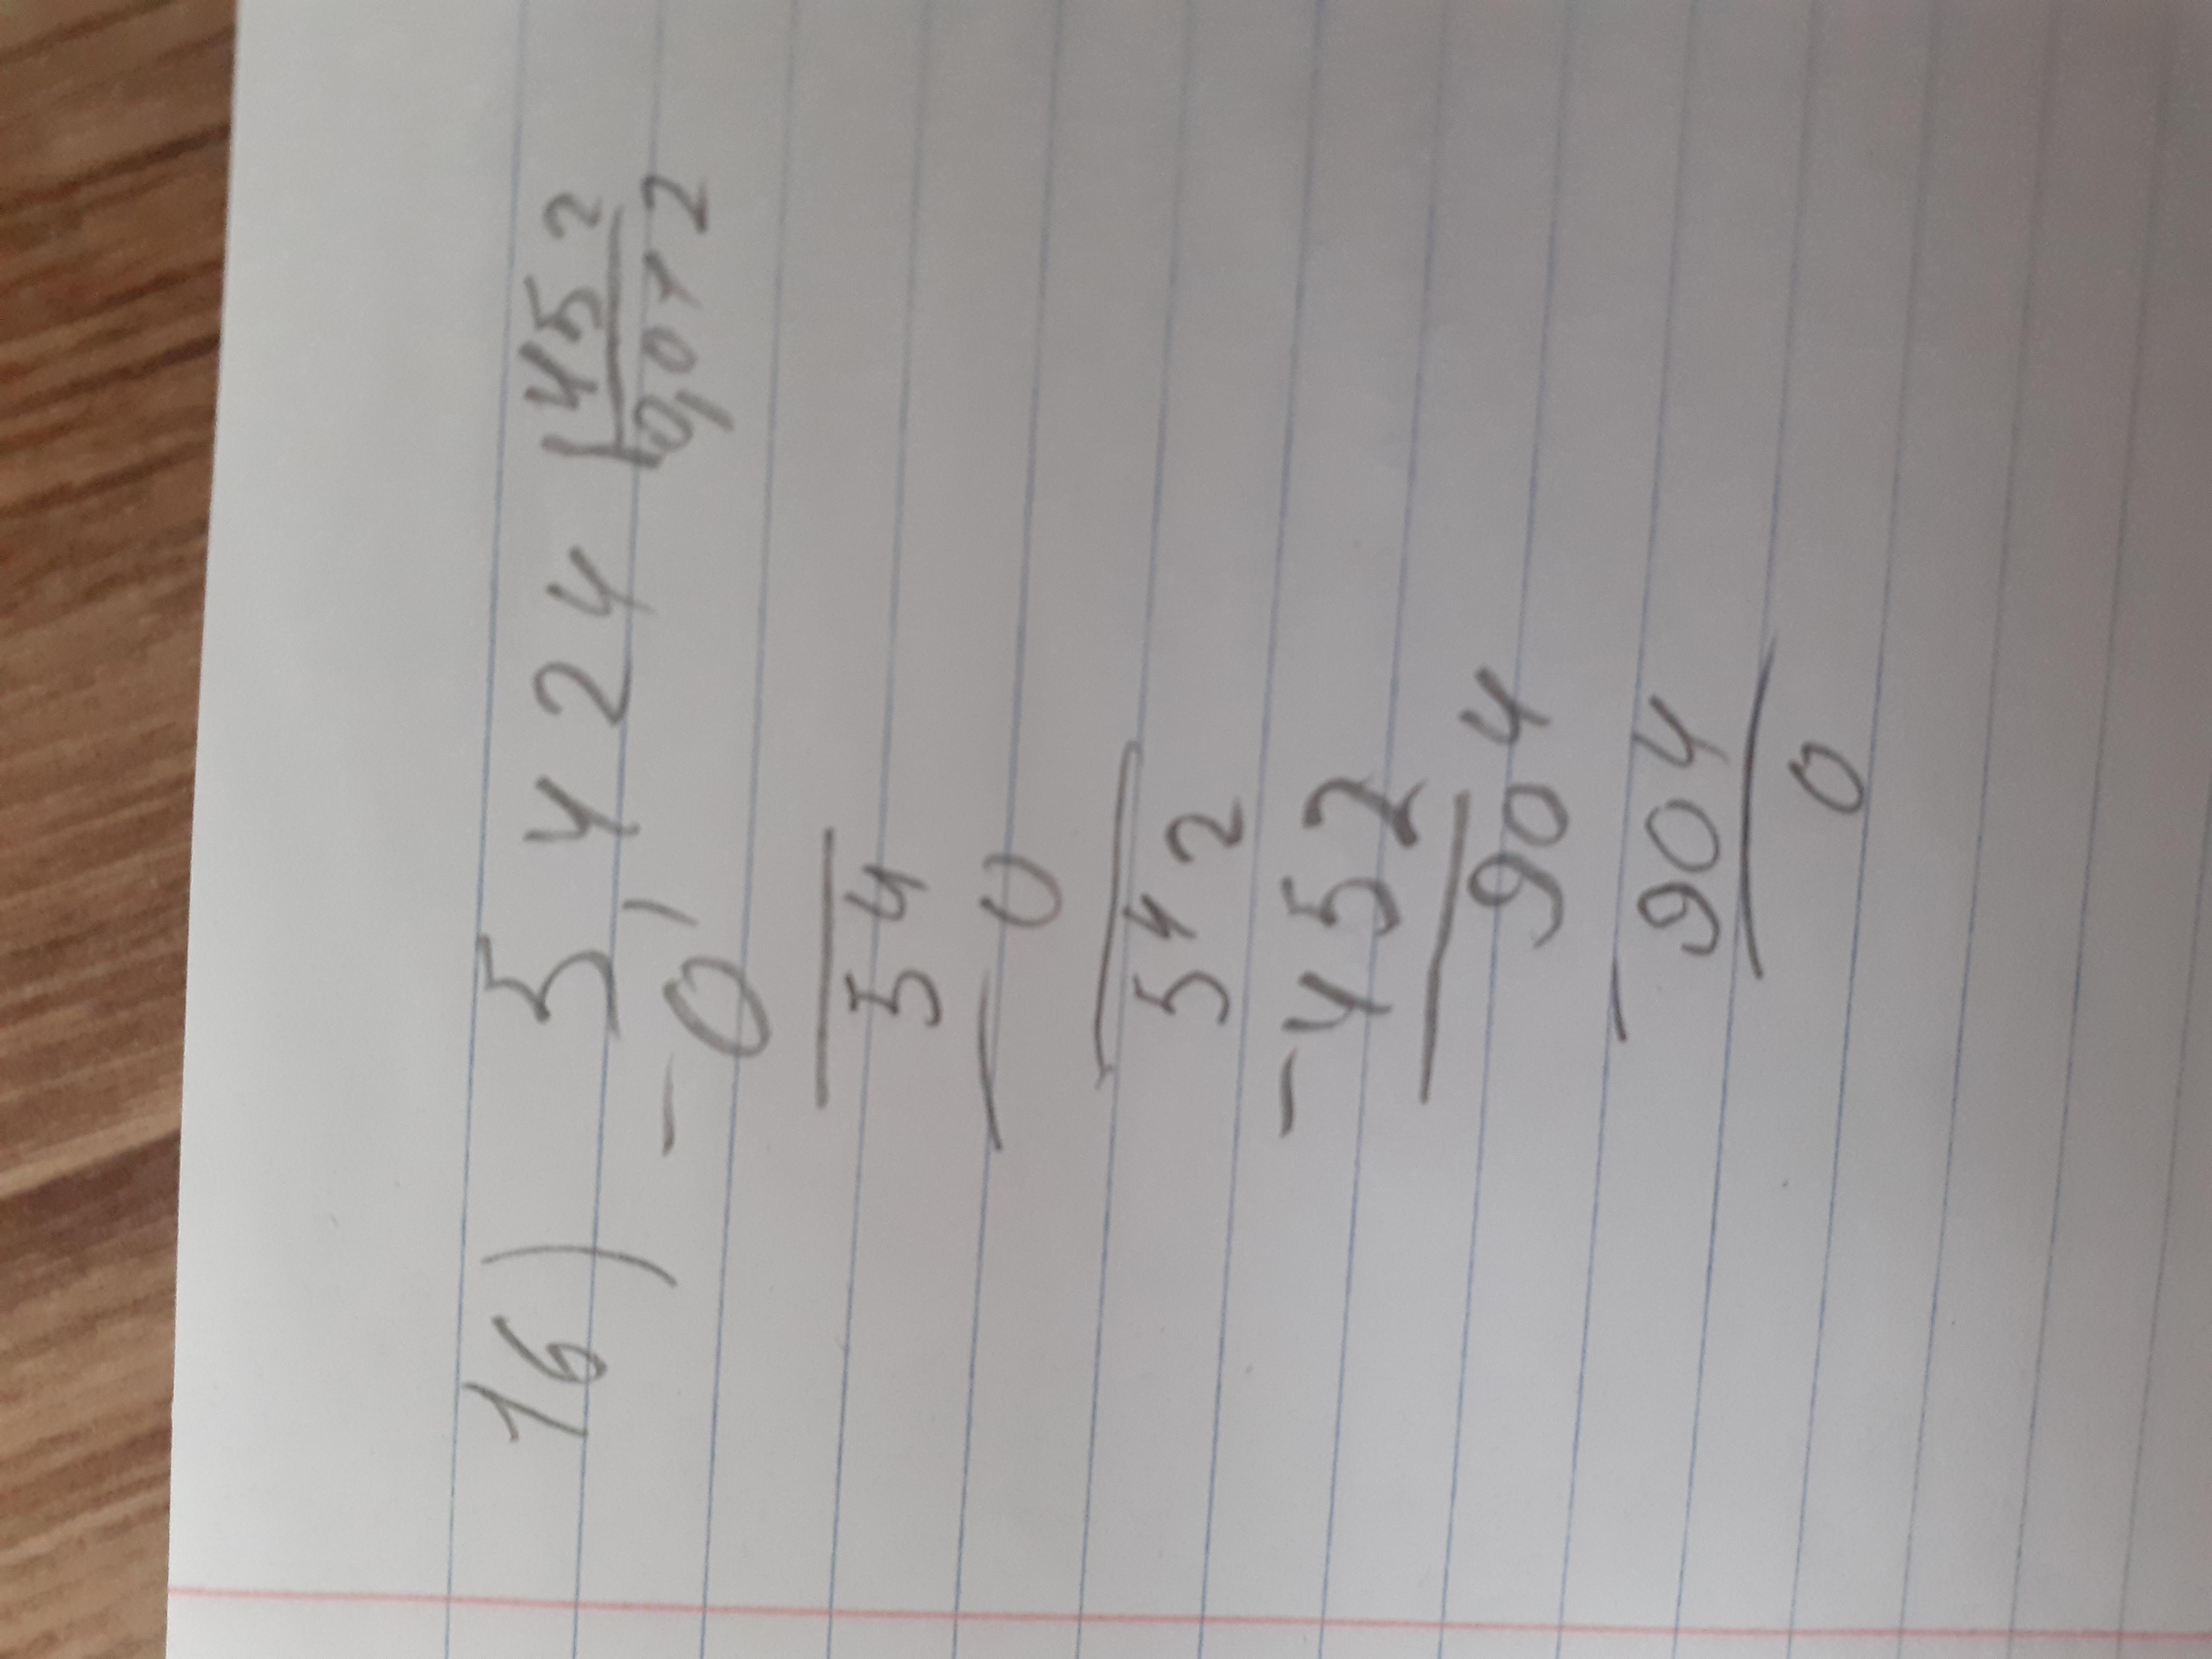 16) 5,424 | 452
- 0 0,012
54
- 0
542
- 452
904
- 904
0